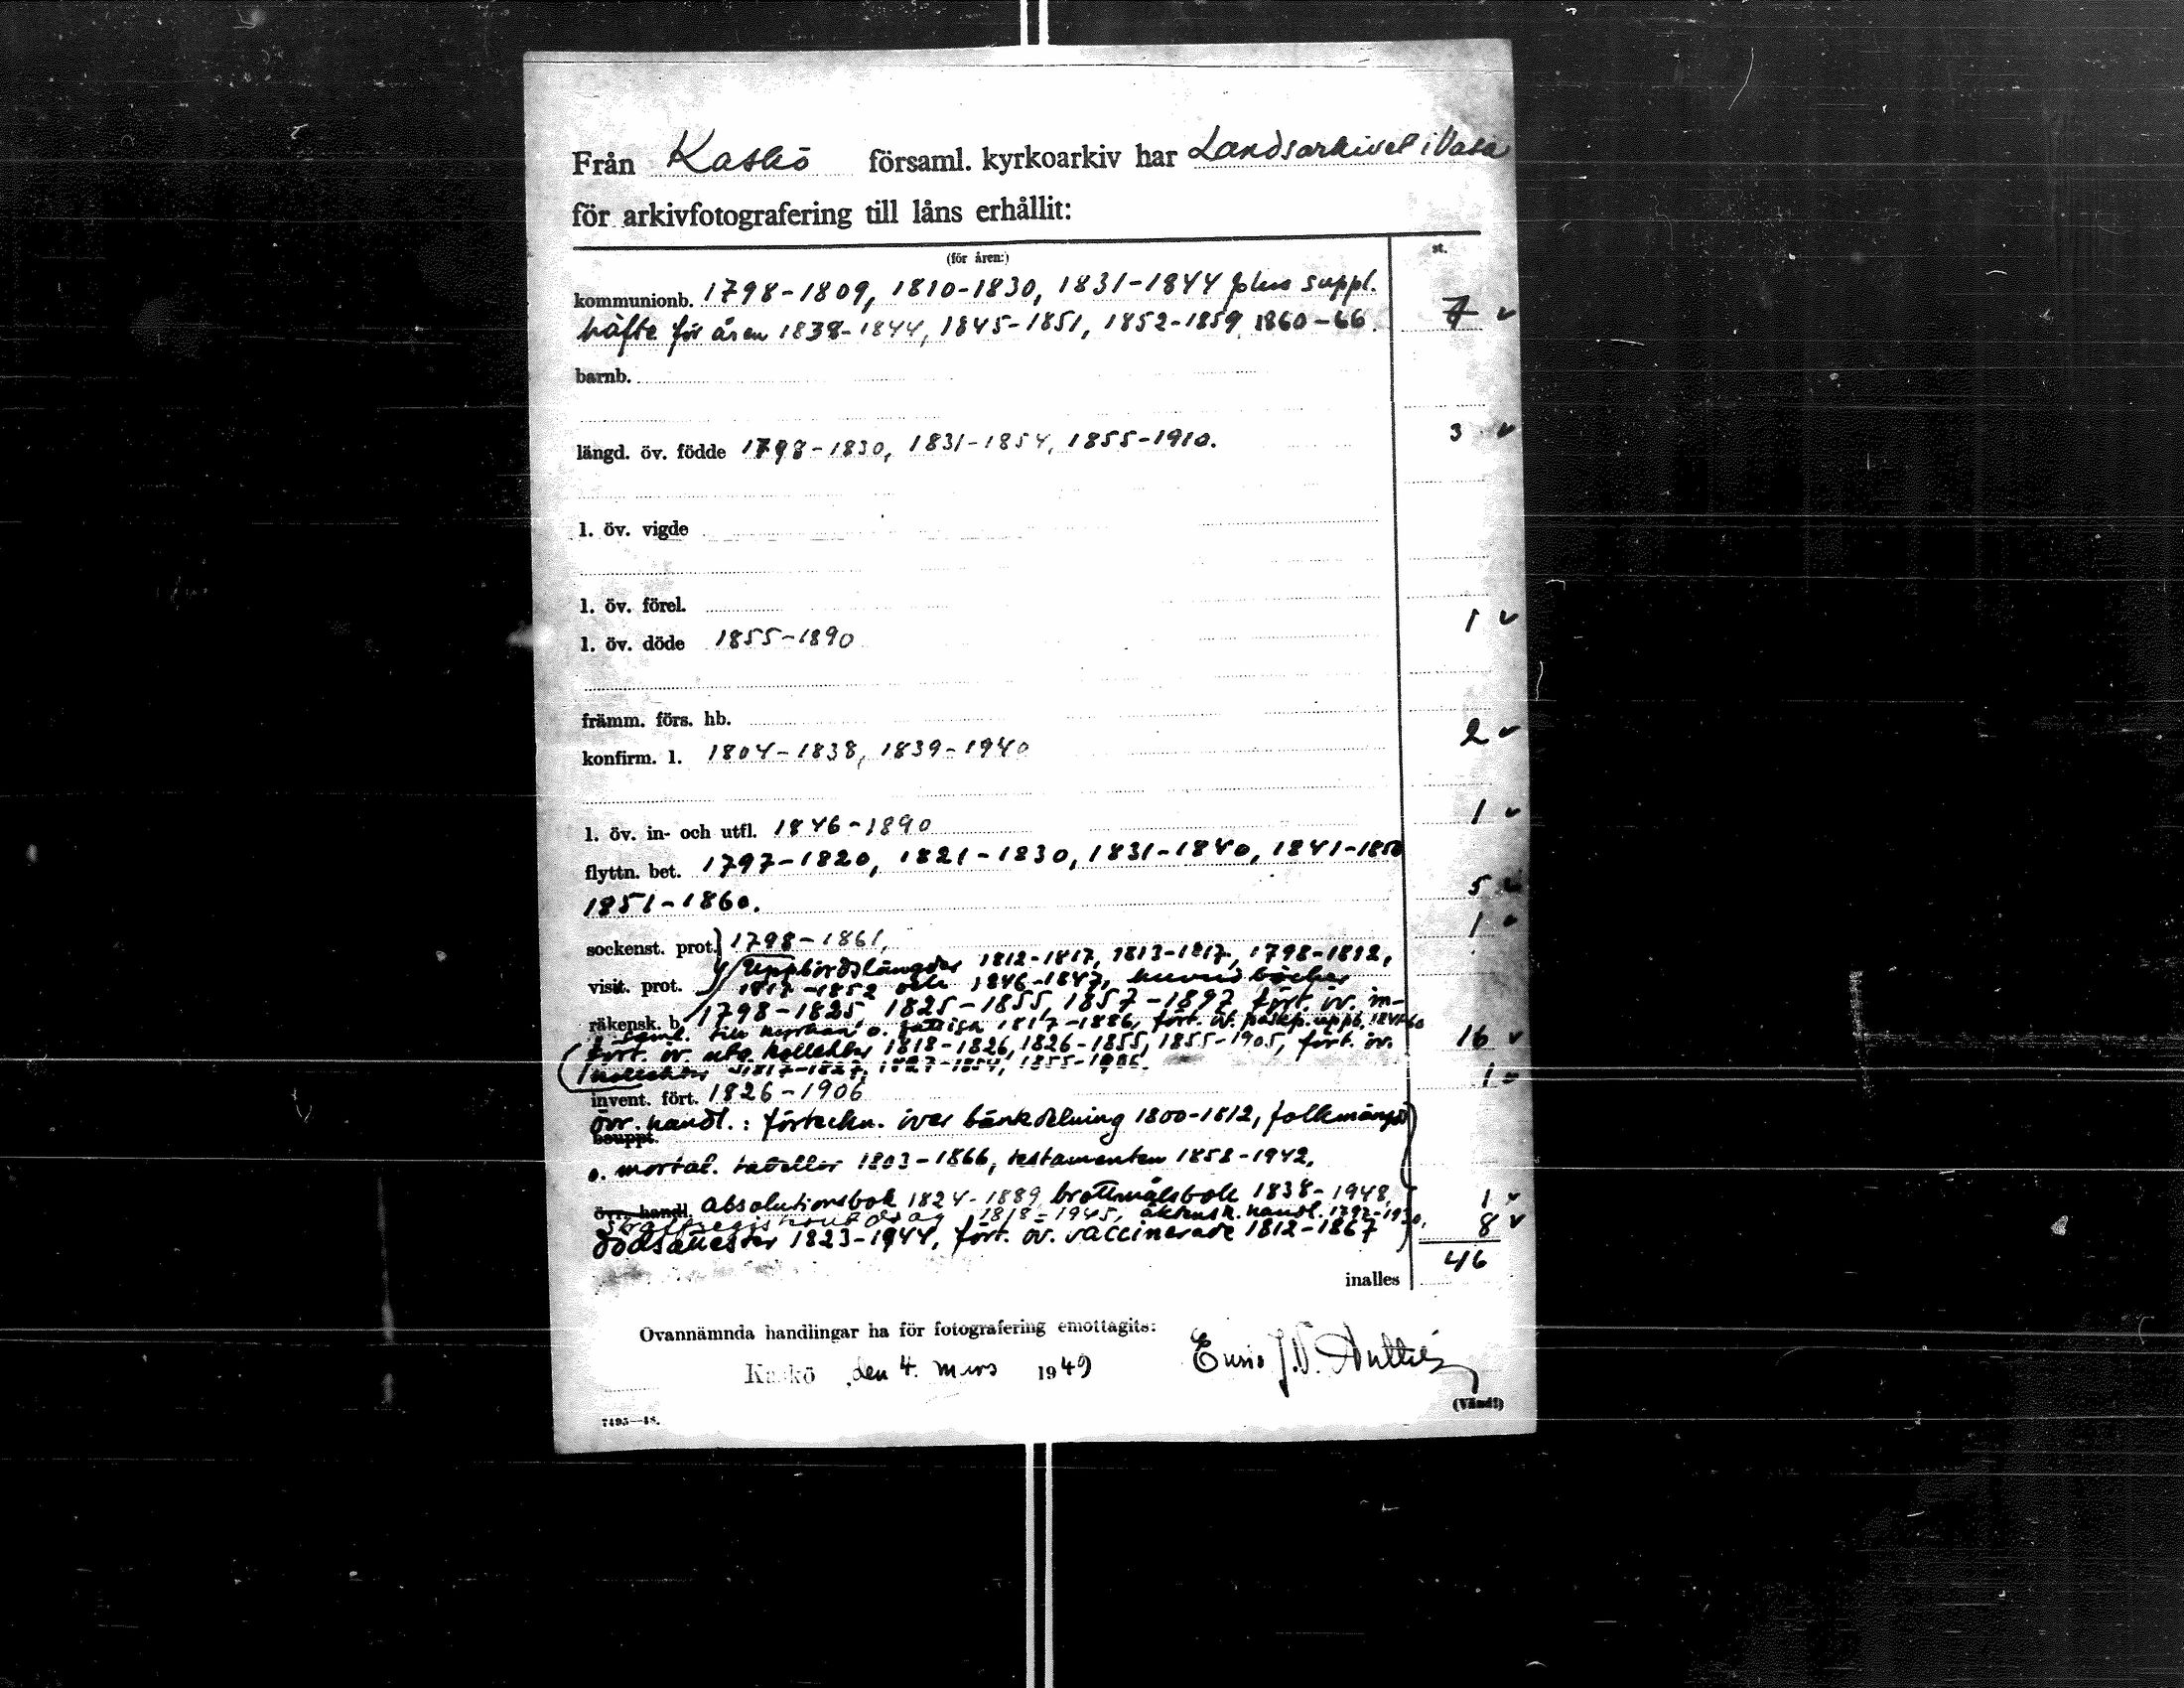 Från Kaskö församl. kyrkoarkiv har Landsarkivet i Vasa
för arkivfotografering till låns erhållit:
(för åren:) st.
kommunionb. 1798-1809, 1810-1830, 1831-1844 plus suppl.
häfte för åren 1838-1844, 1845-1851, 1852-1859, 1860-66. 7
barnb.
längd. öv. födde 1798-1830, 1831-1854, 1855-1910. 3
l. öv. vigde
l. öv. förel.
l. öv. döde 1855-1890 1
främm. förs. hb.
konfirm. l. 1804-1838, 1839-1940 2
l. öv. in- och utfl. 1846-1890 1
flyttn. bet. 1797-1820, 1821-1830, 1831-1840, 1841-1850
1851-1860. 5
sockenst. prot. 1798-1861, 1
Uppbördslängder 1812-1817, 1813-1817, 1798-1812,
visit. prot. 1817-1852 och 1846-1847, huvudböcker
räkensk. b. 1798-1825 1825-1855, 1857-1897, fört. öv. in-
saml. till kyrkan o. fattiga 1817-1886, fört. öv. uppb. 1841-60
fört. öv. utg. kollekter 1818-1826, 1826-1855, 1855-1905, fört. öv. 16
kollekter 1817-1827, 1827-1854,
invent. fört. 1826-1906 1
övr. handl.: förteckn. över bänkdelning 1800-1812, folkmängd
bouppt.
o. mortal. tabeller 1803-1866, testamenten 1858-1942,
övr. handl. Absolutionsbok 1824-1889, brottmålsbok 1838-1948, 1
1818-1945, äktensk. handl. 1797-1930,
dödsattester 1823-1944, fört. öv. vaccinerade 1812-1867 8
46
inalles
Ovannämnda handlingar ha för fotografering emottagits:
Kaskö den 4. mars 1949
(Vänd!)
7495—48.